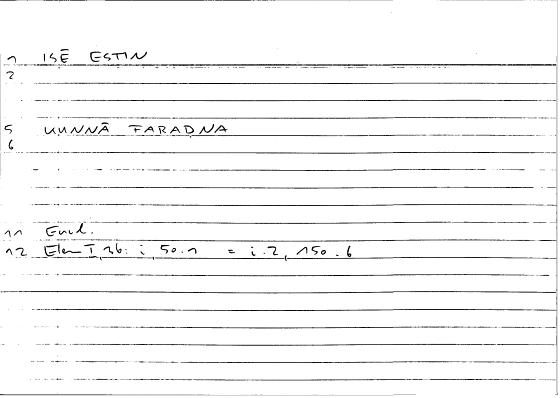 1 ISĒ ESTIN
2
5 UUNNĀ FARADNA
6
11 Eucl.
12 Elem I, 36: i, 50.1 = i.2, 150.6